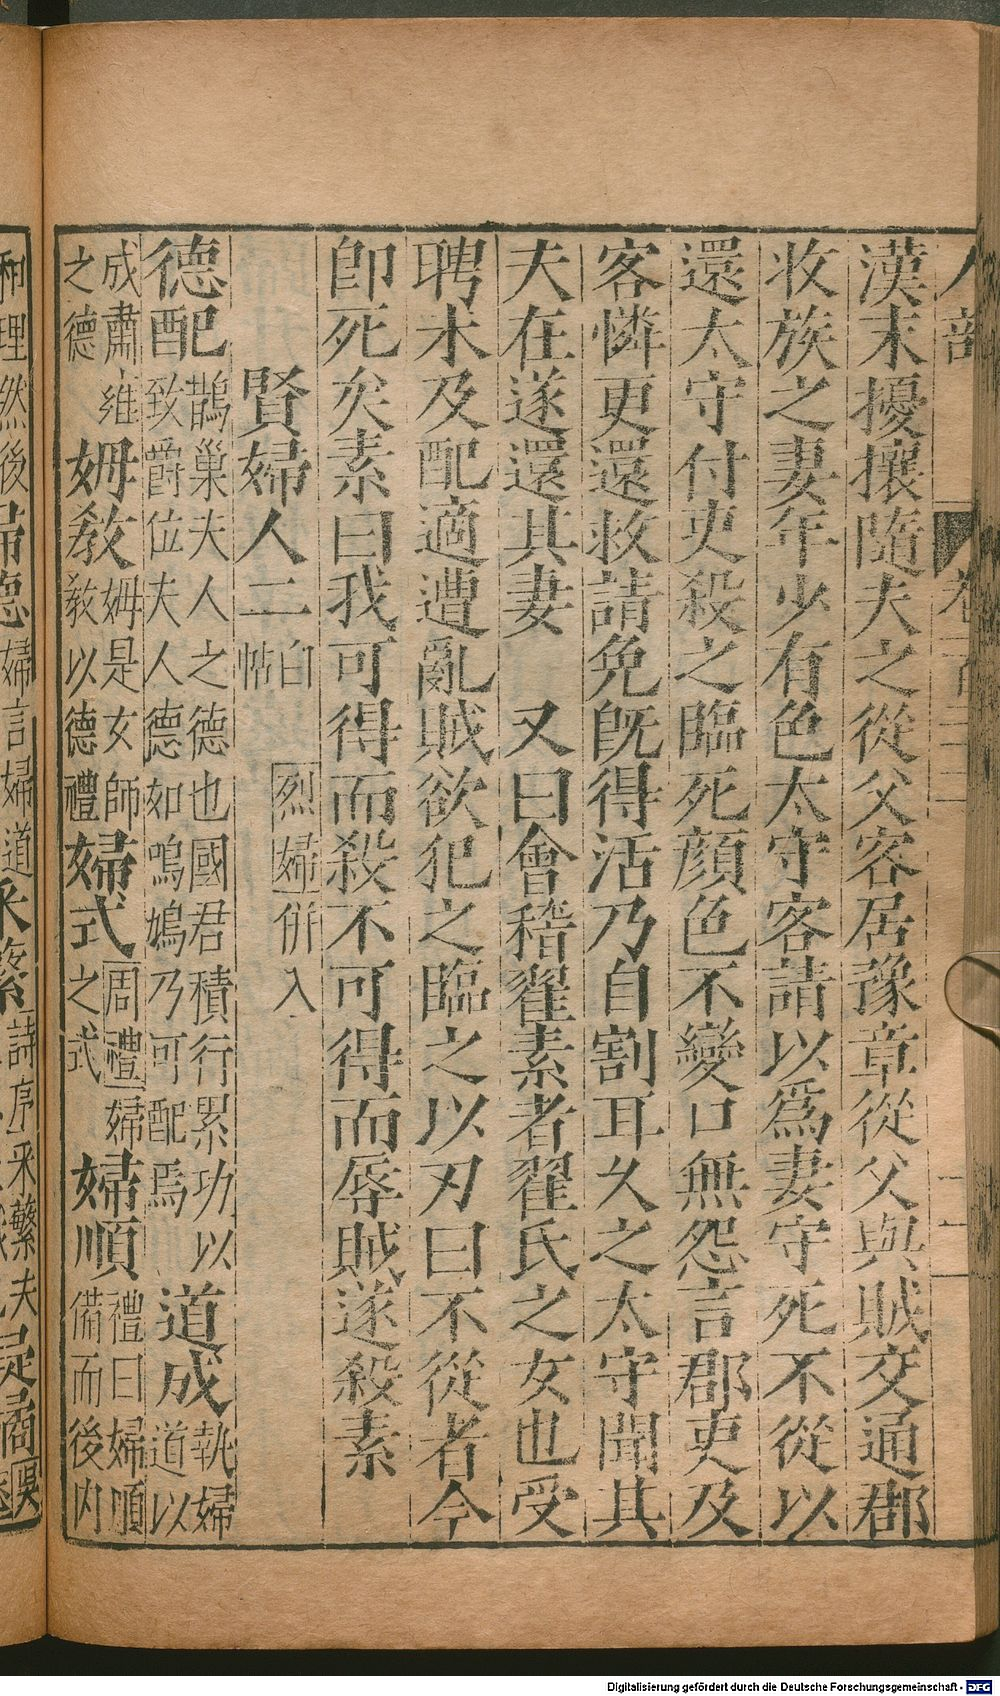 漢末擾攘隨夫之從父客居豫章從父與賊交通郡
收族之妻年少有色太守客請以爲妻守死不從以
還太守付吏殺之臨死顔色不變口無怨言郡吏及
客憐更還救請免旣得活乃自割耳久之太守聞其
夫在遂還其妻　又曰會稽翟素者翟氏之女也受
聘未及配適遭亂賊欲犯之臨之以刃曰不從者今
卽死矣素曰我可得而殺不可得而辱賊遂殺素
賢婦人二白帖　烈婦併入
德配鵲巢夫人之德也國君積行累功以致爵位夫人德如鳴鳩乃可配焉道成執婦道以
成肅雍之德姆敎姆是女師敎以德禮婦式周禮婦之式婦順禮曰婦順備而後內
和理然後婦德婦言婦道采蘩詩序采蘩夫
Digitalisierung gefördert durch die Deutsche Forschungsgemeinschaft - DFG